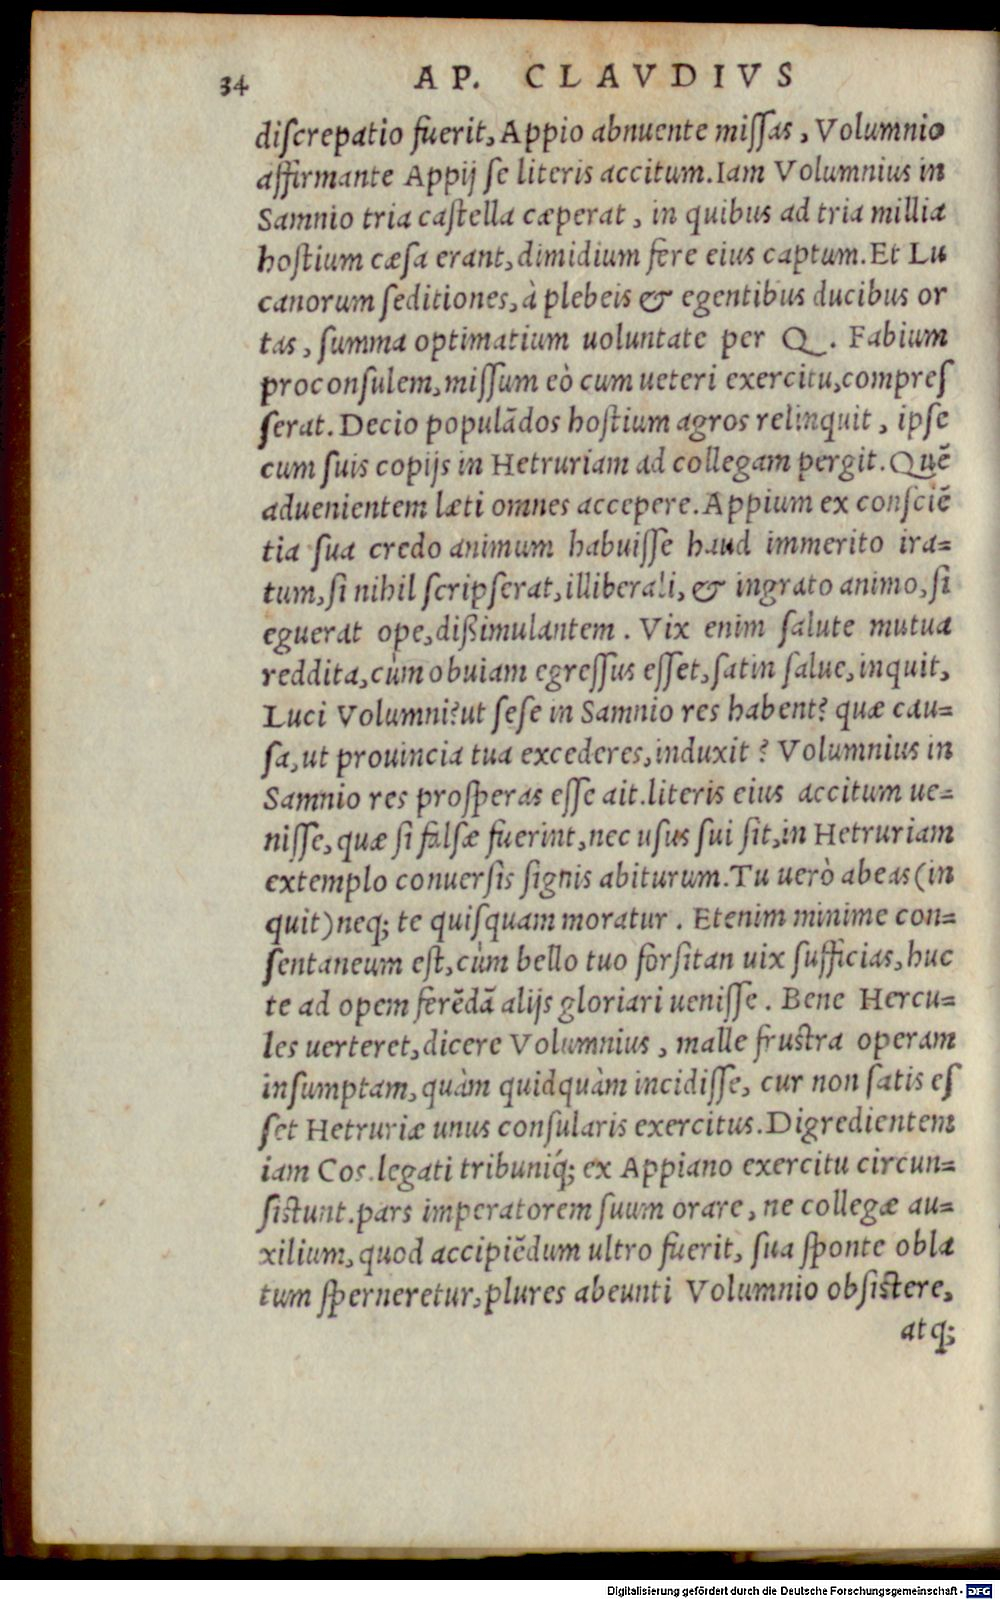 34 AP. CLAVDIVS
diſcrepatio fuerit, Appio abnuente miſſas, Volumnio
affirmante Appij ſe literis accitum. Iam Volumnius in
Samnio tria caſtella cæperat, in quibus ad tria millia
hoſtium cæſa erant, dimidium fere eius captum. Et Lu
canorum ſeditiones, à plebeis & egentibus ducibus or
tas, ſumma optimatium uoluntate per Q. Fabium
proconſulem, miſſum eò cum ueteri exercitu, compreſ
ſerat. Decio populãdos hoſtium agros relinquit, ipſe
cum ſuis copijs in Hetruriam ad collegam pergit. Quẽ
aduenientem læti omnes accepere. Appium ex conſciẽ
tia ſua credo animum habuiſſe haud immerito ira=
tum, ſi nihil ſcripſerat, illiberali, & ingrato animo, ſi
eguerat ope, dißimulantem. Vix enim ſalute mutua
reddita, cùm obuiam egreſſus eſſet, ſatin ſalue, inquit,
Luci Volumni? ut ſeſe in Samnio res habent? quæ cau=
ſa, ut prouincia tua excederes, induxit? Volumnius in
Samnio res proſperas eſſe ait. literis eius accitum ue=
niſſe, quæ ſi falſæ fuerint, nec uſus ſui ſit, in Hetruriam
extemplo conuerſis ſignis abiturum. Tu uerò abeas (in
quit) neq; te quiſquam moratur. Etenim minime con=
ſentaneum eſt, cùm bello tuo forſitan uix ſufficias, huc
te ad opem ferẽdã alijs gloriari ueniſſe. Bene Hercu=
les uerteret, dicere Volumnius, malle fruſtra operam
inſumptam, quàm quidquàm incidiſſe, cur non ſatis eſ
ſet Hetruriæ unus conſularis exercitus. Digredientem
iam Cos. legati tribuniq́; ex Appiano exercitu circun=
ſiſtunt. pars imperatorem ſuum orare, ne collegæ au=
xilium, quod accipiẽdum ultro fuerit, ſua ſponte obla
tum ſperneretur, plures abeunti Volumnio obſiſtere,
atq;
Digitalisierung gefördert durch die Deutsche Forschungsgemeinschaft - DFG